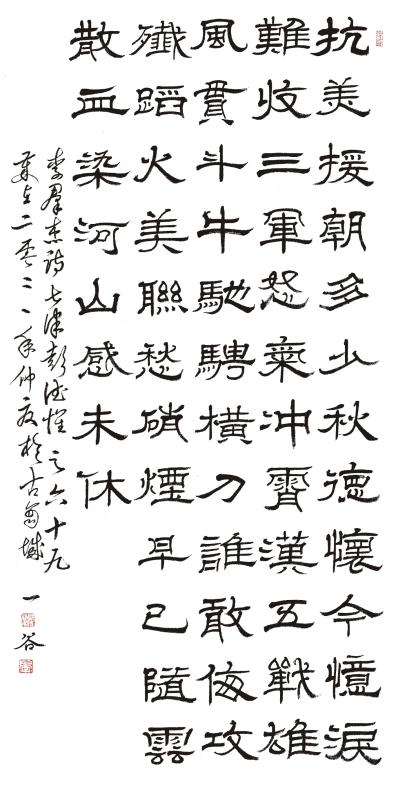 抗美援朝多少秋德懷今憶淚
難收三軍怒氣冲霄漢五戰雄
風貫斗牛馳騁橫刀誰敢侮攻
殲蹈火美聯愁硝煙早已隨雲
散血染河山感未休
李羣杰詩七律彭德懷之六十九
歲在二零二一年仲夏於古城
一谷